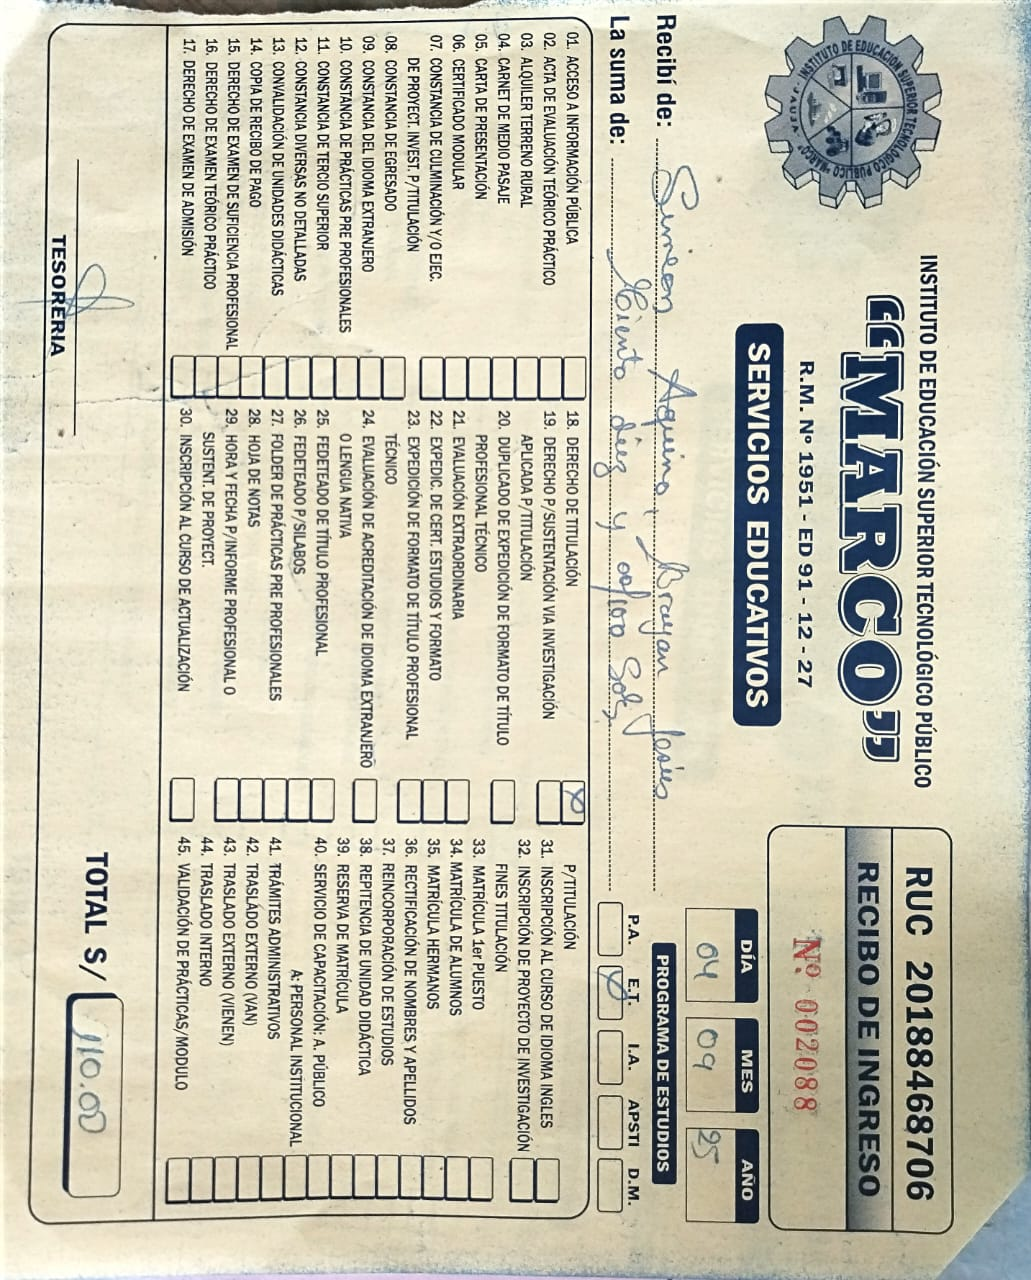 INSTITUTO DE EDUCACIÓN SUPERIOR TECNOLÓGICO PÚBLICO "MARCO"
JAUJA
INSTITUTO DE EDUCACIÓN SUPERIOR TECNOLÓGICO PÚBLICO
"MARCO"
R.M. Nº 1951 - ED 91 - 12 - 27
SERVICIOS EDUCATIVOS
RUC 20188468706
RECIBO DE INGRESO
Nº 002088
DÍA MES AÑO
04 09 25
PROGRAMA DE ESTUDIOS
P.A. E.T. I.A. APSTI D.M.
X
Recibí de: Simeon Aquino, Brayan Jesús
La suma de: Ciento diez y 00/100 Soles
01. ACCESO A INFORMACIÓN PÚBLICA
02. ACTA DE EVALUACIÓN TEÓRICO PRÁCTICO
03. ALQUILER TERRENO RURAL
04. CARNET DE MEDIO PASAJE
05. CARTA DE PRESENTACIÓN
06. CERTIFICADO MODULAR
07. CONSTANCIA DE CULMINACIÓN Y/O EJEC.
DE PROYECT. INVEST. P/TITULACIÓN
08. CONSTANCIA DE EGRESADO
09. CONSTANCIA DEL IDIOMA EXTRANJERO
10. CONSTANCIA DE PRÁCTICAS PRE PROFESIONALES
11. CONSTANCIA DE TERCIO SUPERIOR
12. CONSTANCIA DIVERSAS NO DETALLADAS
13. CONVALIDACIÓN DE UNIDADES DIDÁCTICAS
14. COPIA DE RECIBO DE PAGO
15. DERECHO DE EXAMEN DE SUFICIENCIA PROFESIONAL
16. DERECHO DE EXAMEN TEÓRICO PRÁCTICO
17. DERECHO DE EXAMEN DE ADMISIÓN
18. DERECHO DE TITULACIÓN X
19. DERECHO P/SUSTENTACIÓN VIA INVESTIGACIÓN
APLICADA P/TITULACIÓN
20. DUPLICADO DE EXPEDICIÓN DE FORMATO DE TÍTULO
PROFESIONAL TÉCNICO
21. EVALUACIÓN EXTRAORDINARIA
22. EXPEDIC. DE CERT. ESTUDIOS Y FORMATO
23. EXPEDICIÓN DE FORMATO DE TÍTULO PROFESIONAL
TÉCNICO
24. EVALUACIÓN DE ACREDITACIÓN DE IDIOMA EXTRANJERO
O LENGUA NATIVA
25. FEDETEADO DE TÍTULO PROFESIONAL
26. FEDETEADO P/SILABOS
27. FOLDER DE PRÁCTICAS PRE PROFESIONALES
28. HOJA DE NOTAS
29. HORA Y FECHA P/INFORME PROFESIONAL O
SUSTENT. DE PROYECT.
30. INSCRIPCIÓN AL CURSO DE ACTUALIZACIÓN
P/TITULACIÓN
31. INSCRIPCIÓN AL CURSO DE IDIOMA INGLES
32. INSCRIPCIÓN DE PROYECTO DE INVESTIGACIÓN
FINES TITULACIÓN
33. MATRÍCULA 1er PUESTO
34. MATRÍCULA DE ALUMNOS
35. MATRÍCULA HERMANOS
36. RECTIFICACIÓN DE NOMBRES Y APELLIDOS
37. REINCORPORACIÓN DE ESTUDIOS
38. REPITENCIA DE UNIDAD DIDÁCTICA
39. RESERVA DE MATRÍCULA
40. SERVICIO DE CAPACITACIÓN: A. PÚBLICO
A: PERSONAL INSTITUCIONAL
41. TRÁMITES ADMINISTRATIVOS
42. TRASLADO EXTERNO (VAN)
43. TRASLADO EXTERNO (VIENEN)
44. TRASLADO INTERNO
45. VALIDACIÓN DE PRÁCTICAS/MODULO
TESORERIA
TOTAL S/ 110.00